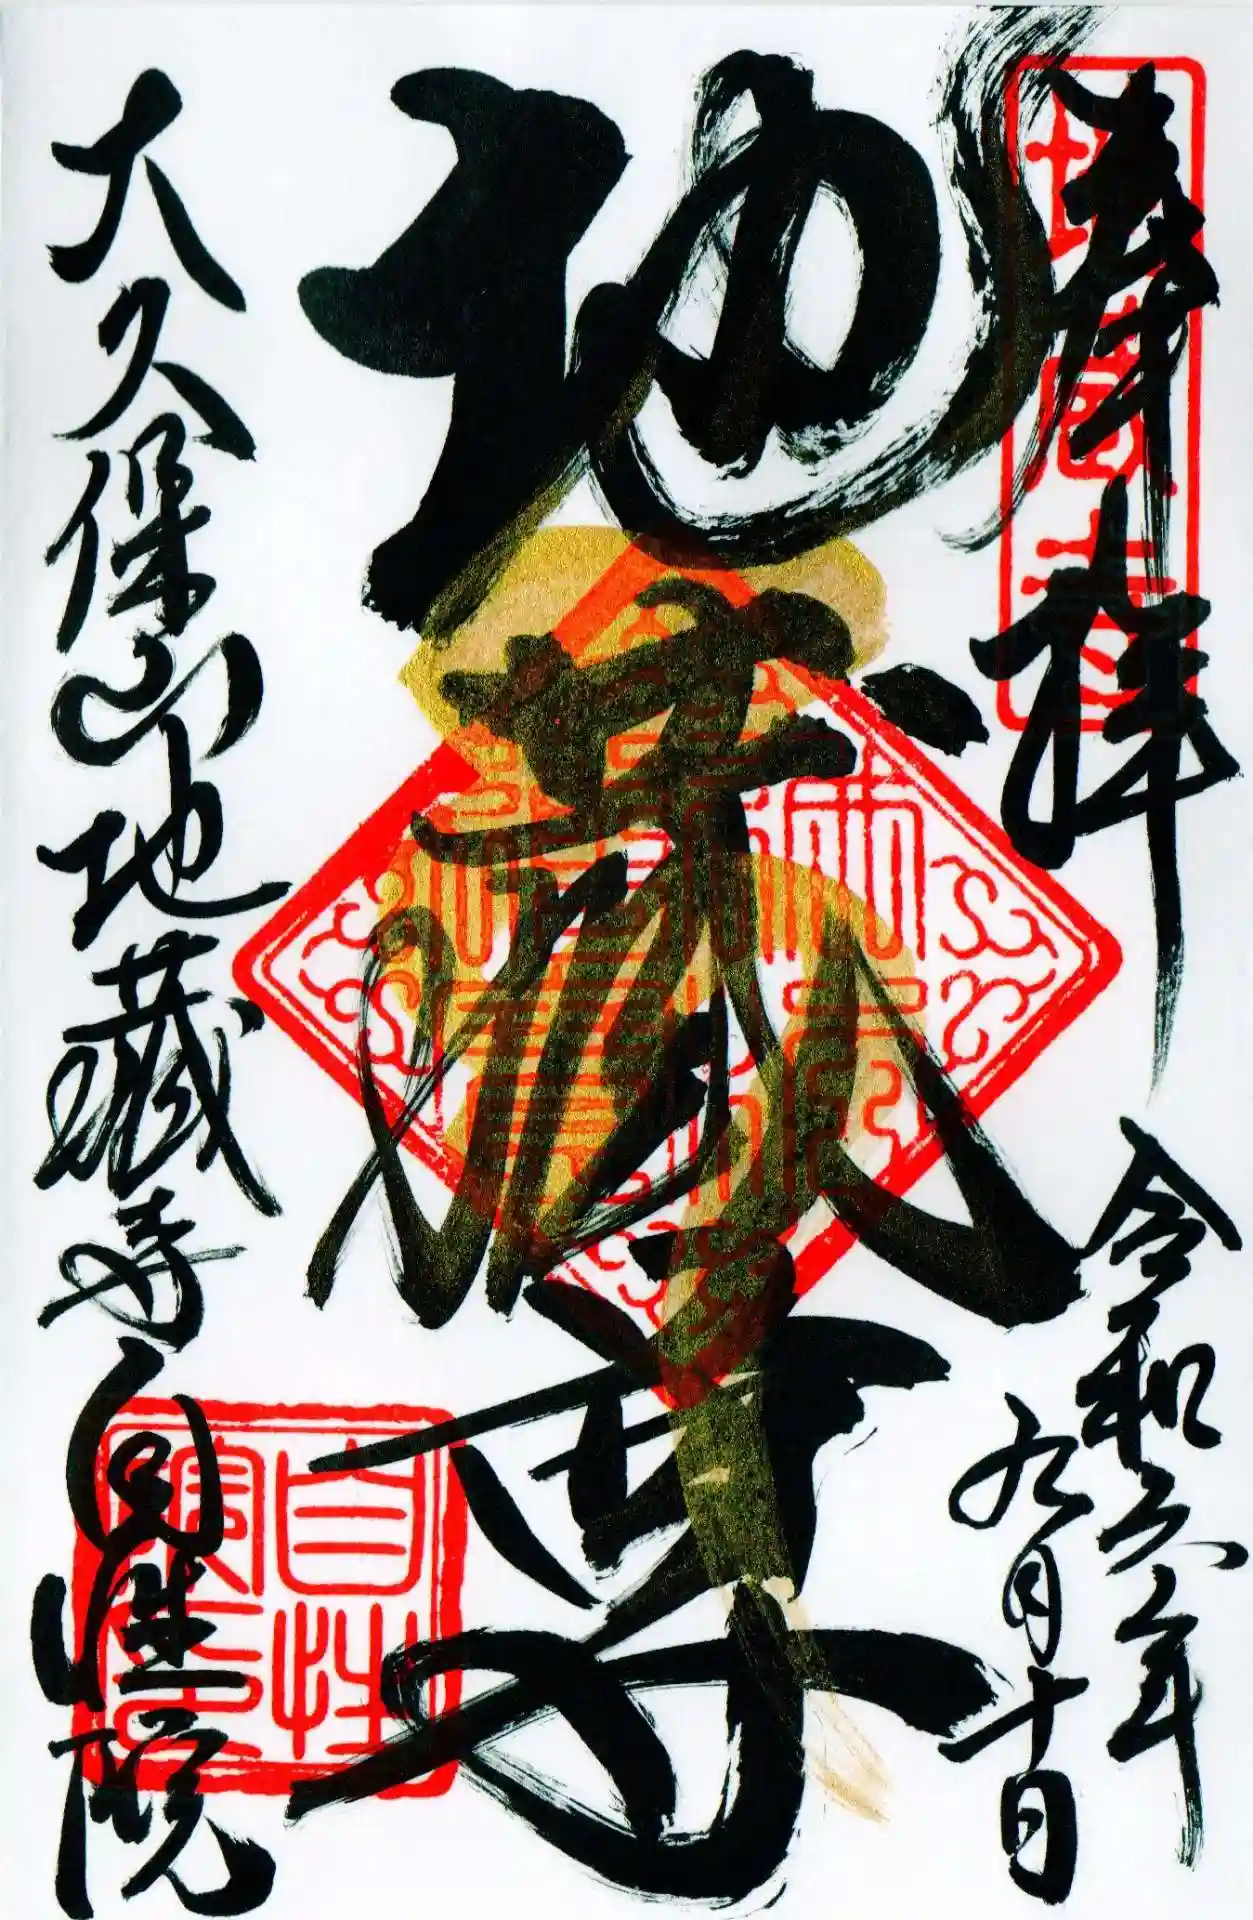 奉拝
地蔵寺
令和六年
九月十日
地蔵尊
大久保山地蔵寺自性院
自性院印